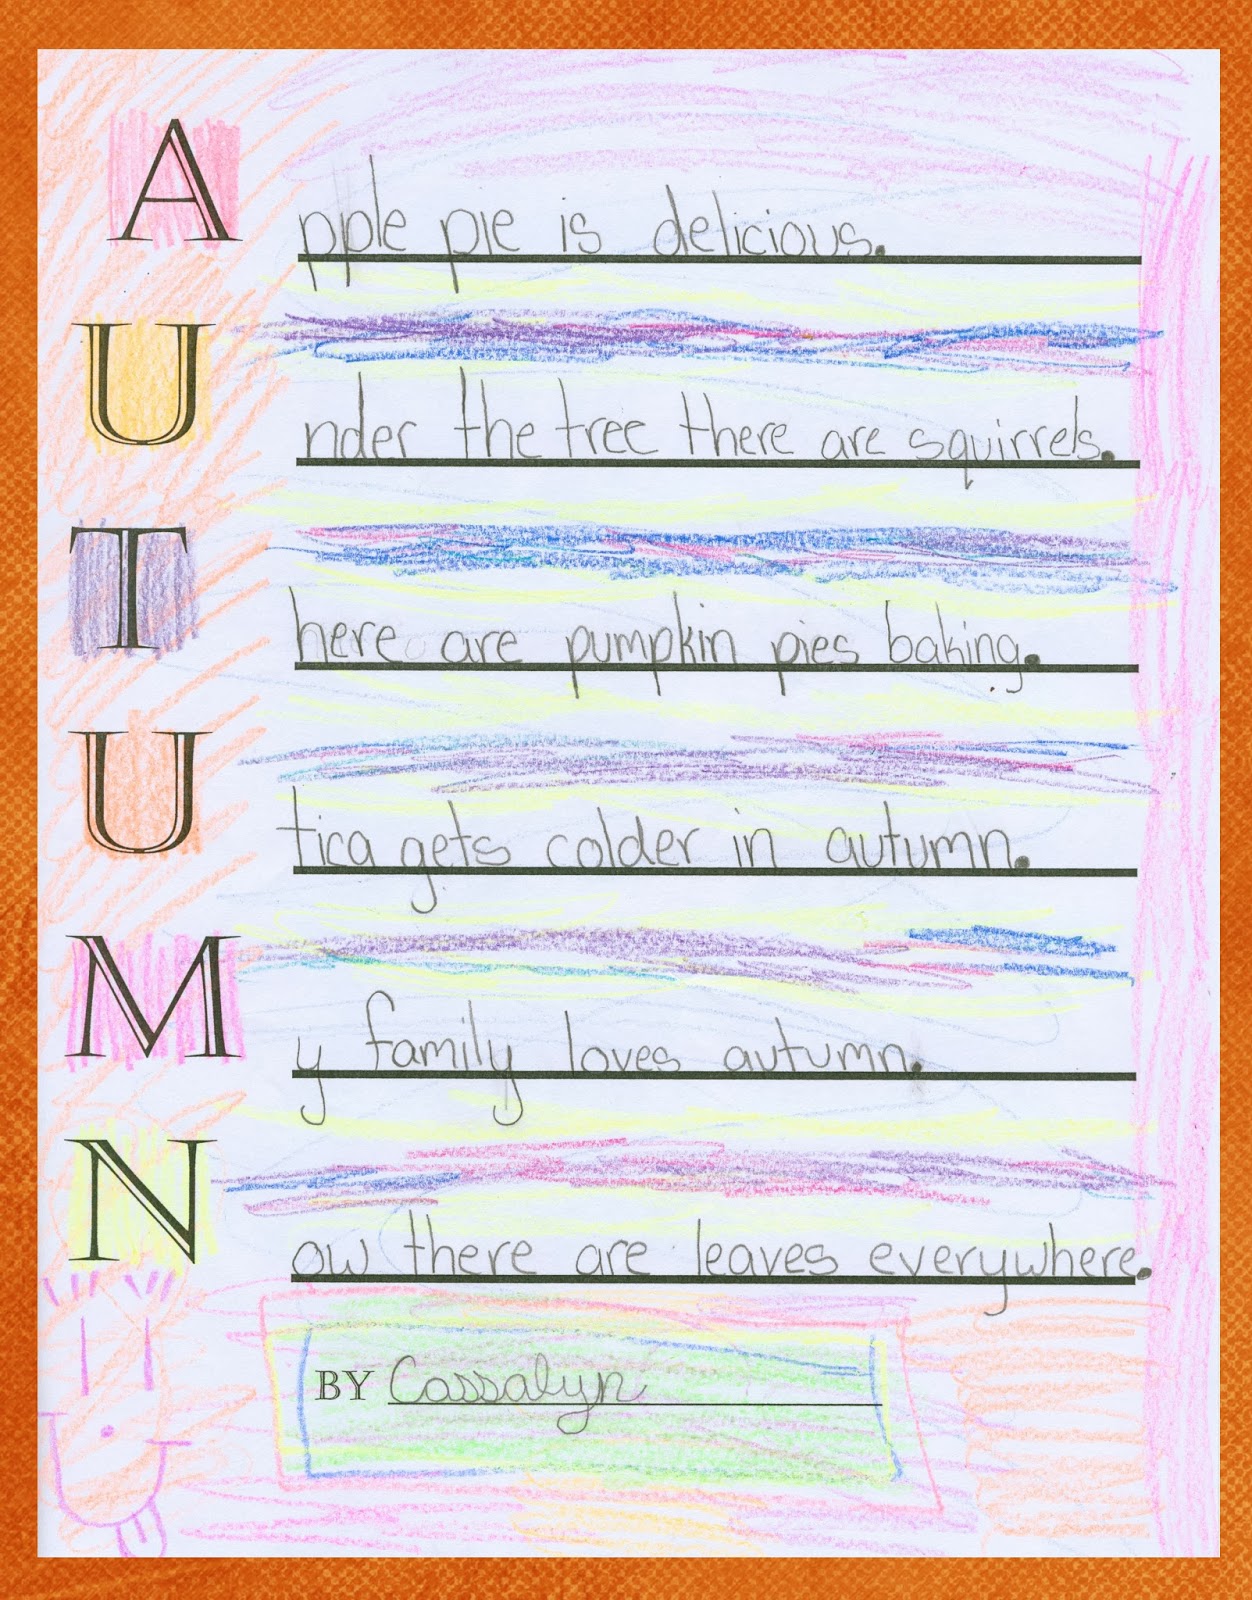 Apple pie is delicious.
Under the tree there are squirrels.
There are pumpkin pies baking.
Utica gets colder in autumn.
My family loves autumn.
Now there are leaves everywhere.
BY Cassalyn